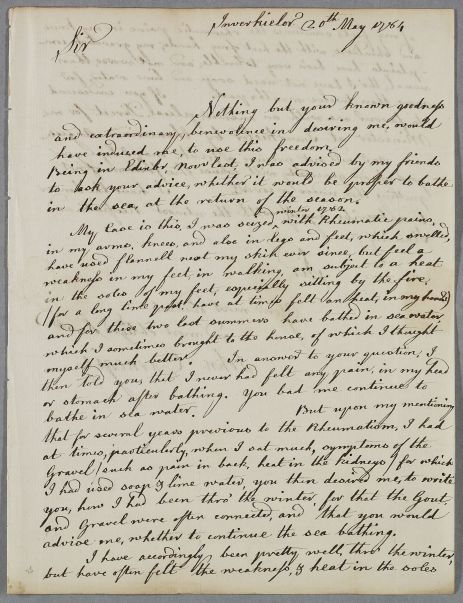 Inverkielor 20th May 1764
Sir
Nothing but your known goodness
and extraordinary benevolence in desiring me, would
have induced me, to use this freedom.
Being in Edinbr Novr last, I was advised by my friends
to ask your advice, whether it would be proper to bathe
in the sea, at the return of the season.
winter 1762
My Case is this, I was seized with Rheumatic pains,
in my arms, knees, and also in legs and feet, which swelled,
have used flannell next my skin ever since, but feel a
weakness in my feet in walking, am subject to a heat
in the soles of my feet, especially sitting by the fire,
(for a long time past have at times felt an heat, in my hands)
and for these two last summers have bathed in sea water
which I sometimes brought to the house, of which I thought
myself much better. In answer to your question, I
then told you, that I never had felt any pain, in my head
or stomach after bathing. You bad me continue to
bathe in sea water. But upon my mentioning
that for several years previous to the Rheumatism, I had
at times, particularly, when I sat much, symptoms of the
Gravel (such as pain in back, heat in the kidneys) for which
I had used soap & lime water, you then desired me, to write
you, how I had been thro' the winter, for that the Gout,
and Gravel were often connected, and that you would
advise me, whether to continue the sea bathing.
I have accordingly been pretty well, thro' the winter,
but have often felt the weakness, & heat in the soles